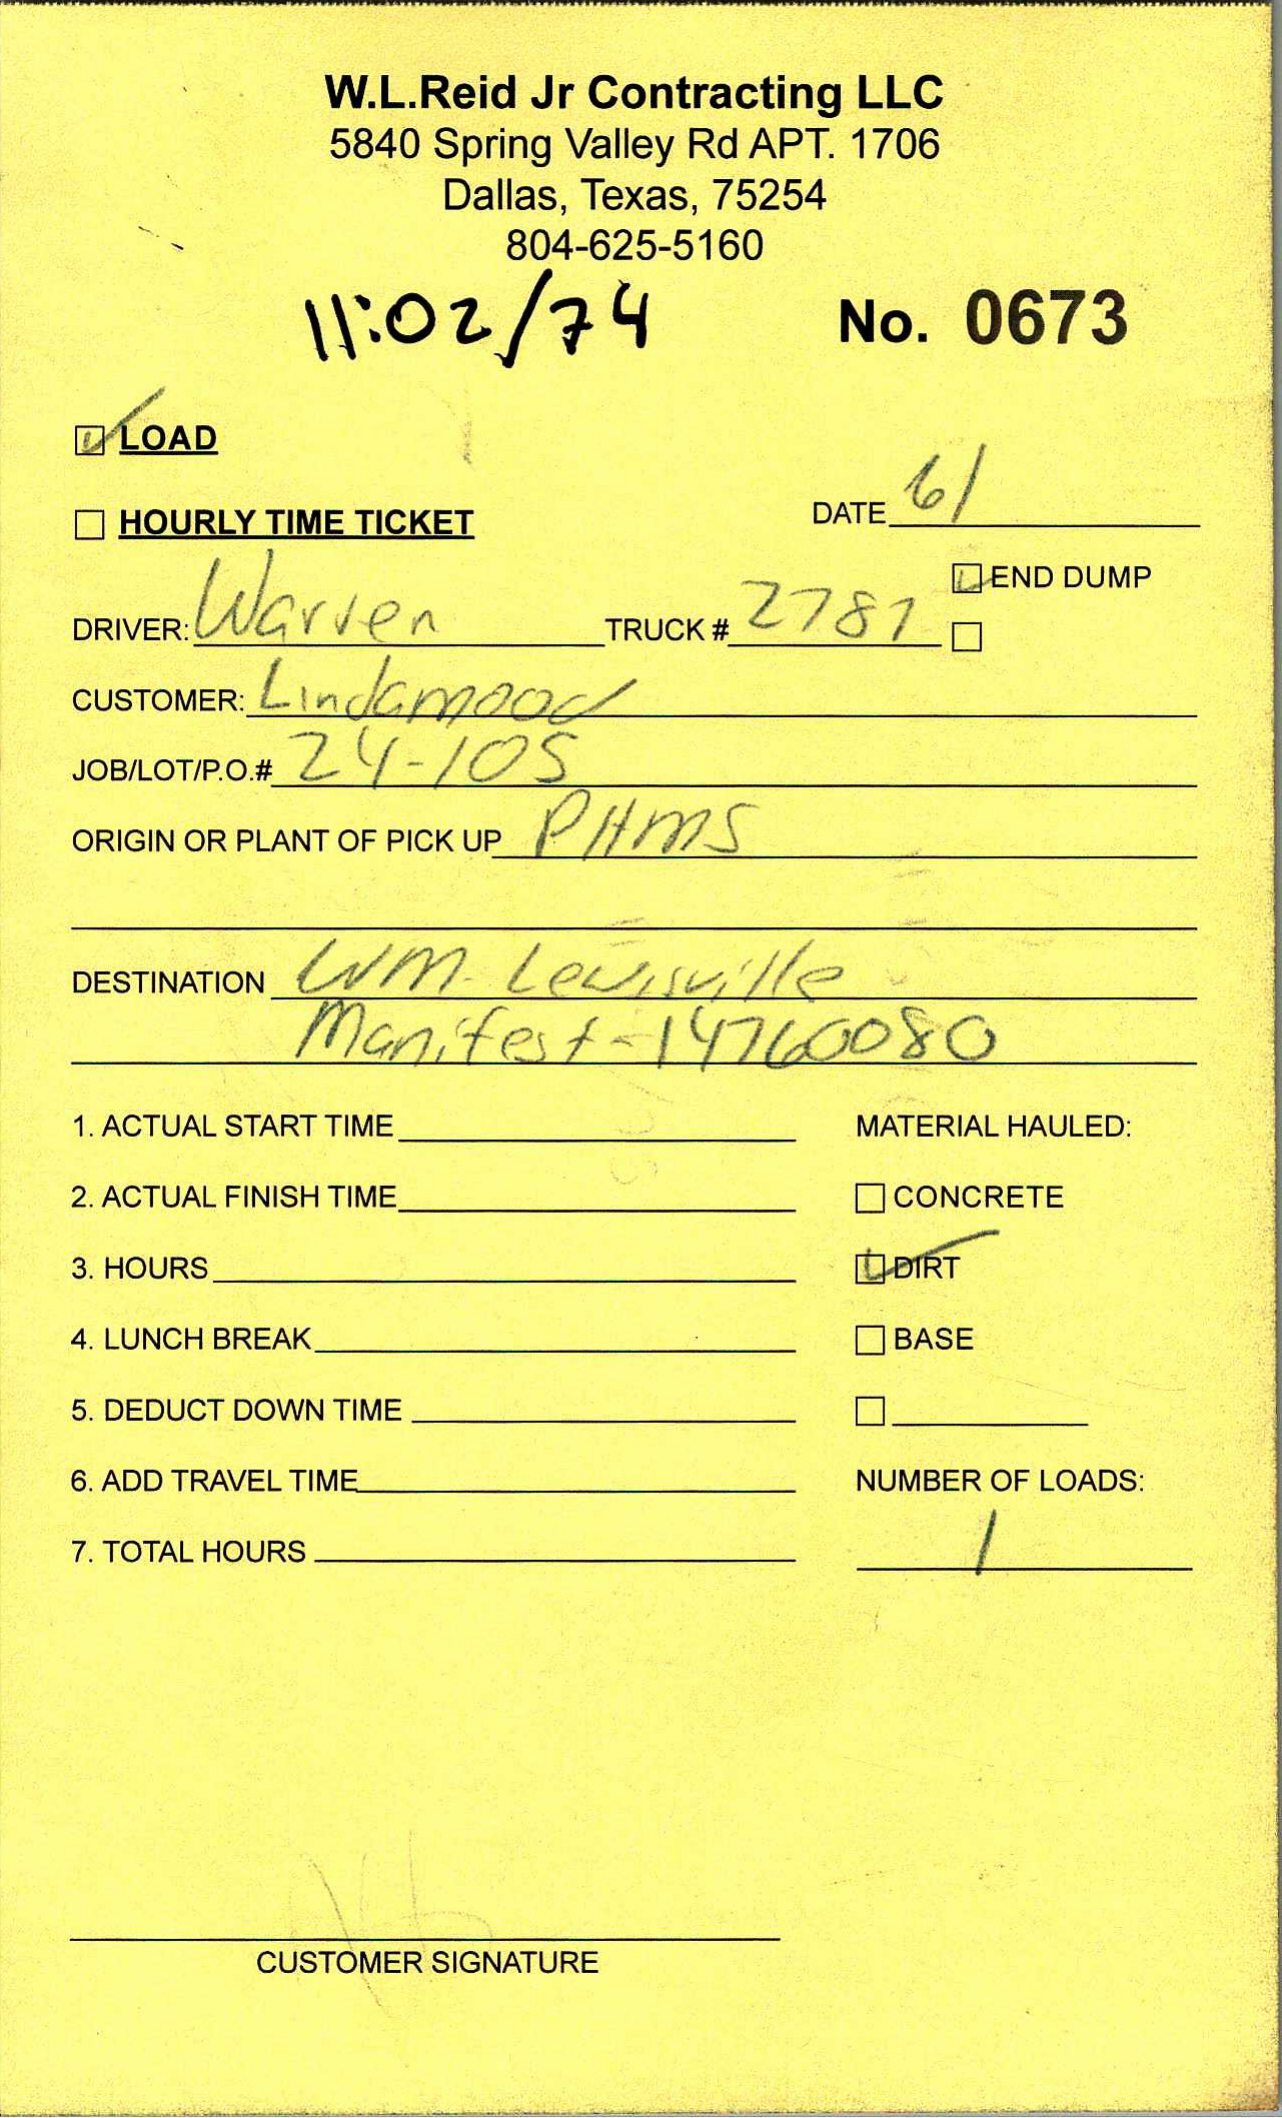 W.L.Reid Jr Contracting LLC
5840 Spring Valley Rd APT. 1706
Dallas, Texas, 75254
804-625-5160
11:02/74
No. 0673
LOAD
HOURLY TIME TICKET
DATE 6/
END DUMP
DRIVER: Warren TRUCK # 2787
CUSTOMER: Lindamood
JOB/LOT/P.O.# 24-105
ORIGIN OR PLANT OF PICK UP PHMS
DESTINATION WM-Lewisville
Manifest-14760080
1. ACTUAL START TIME MATERIAL HAULED:
2. ACTUAL FINISH TIME CONCRETE
3. HOURS DIRT
4. LUNCH BREAK BASE
5. DEDUCT DOWN TIME
6. ADD TRAVEL TIME NUMBER OF LOADS:
7. TOTAL HOURS 1
CUSTOMER SIGNATURE